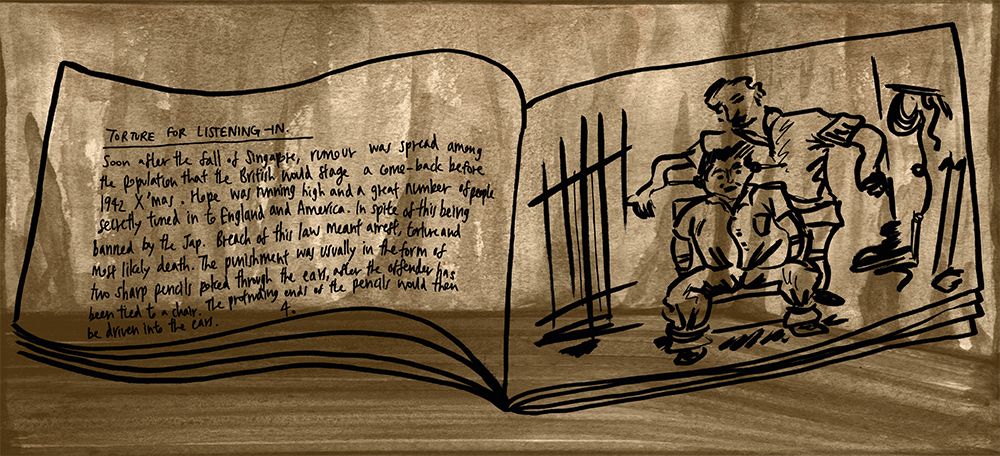 TORTURE FOR LISTENING-IN.
Soon after the fall of Singapore, rumour was spread among
the population that the British would stage a come-back before
1942 X'mas. Hope was running high and a great number of people
secretly tuned in to England and America. In spite of this being
banned by the Jap. Breach of this law meant arrest, torture and
most likely death. The punishment was usually in the form of
two sharp pencils poked through the ears, after the offender has
been tied to a chair. The protruding ends of the pencils would then
be driven into the ears.
4.